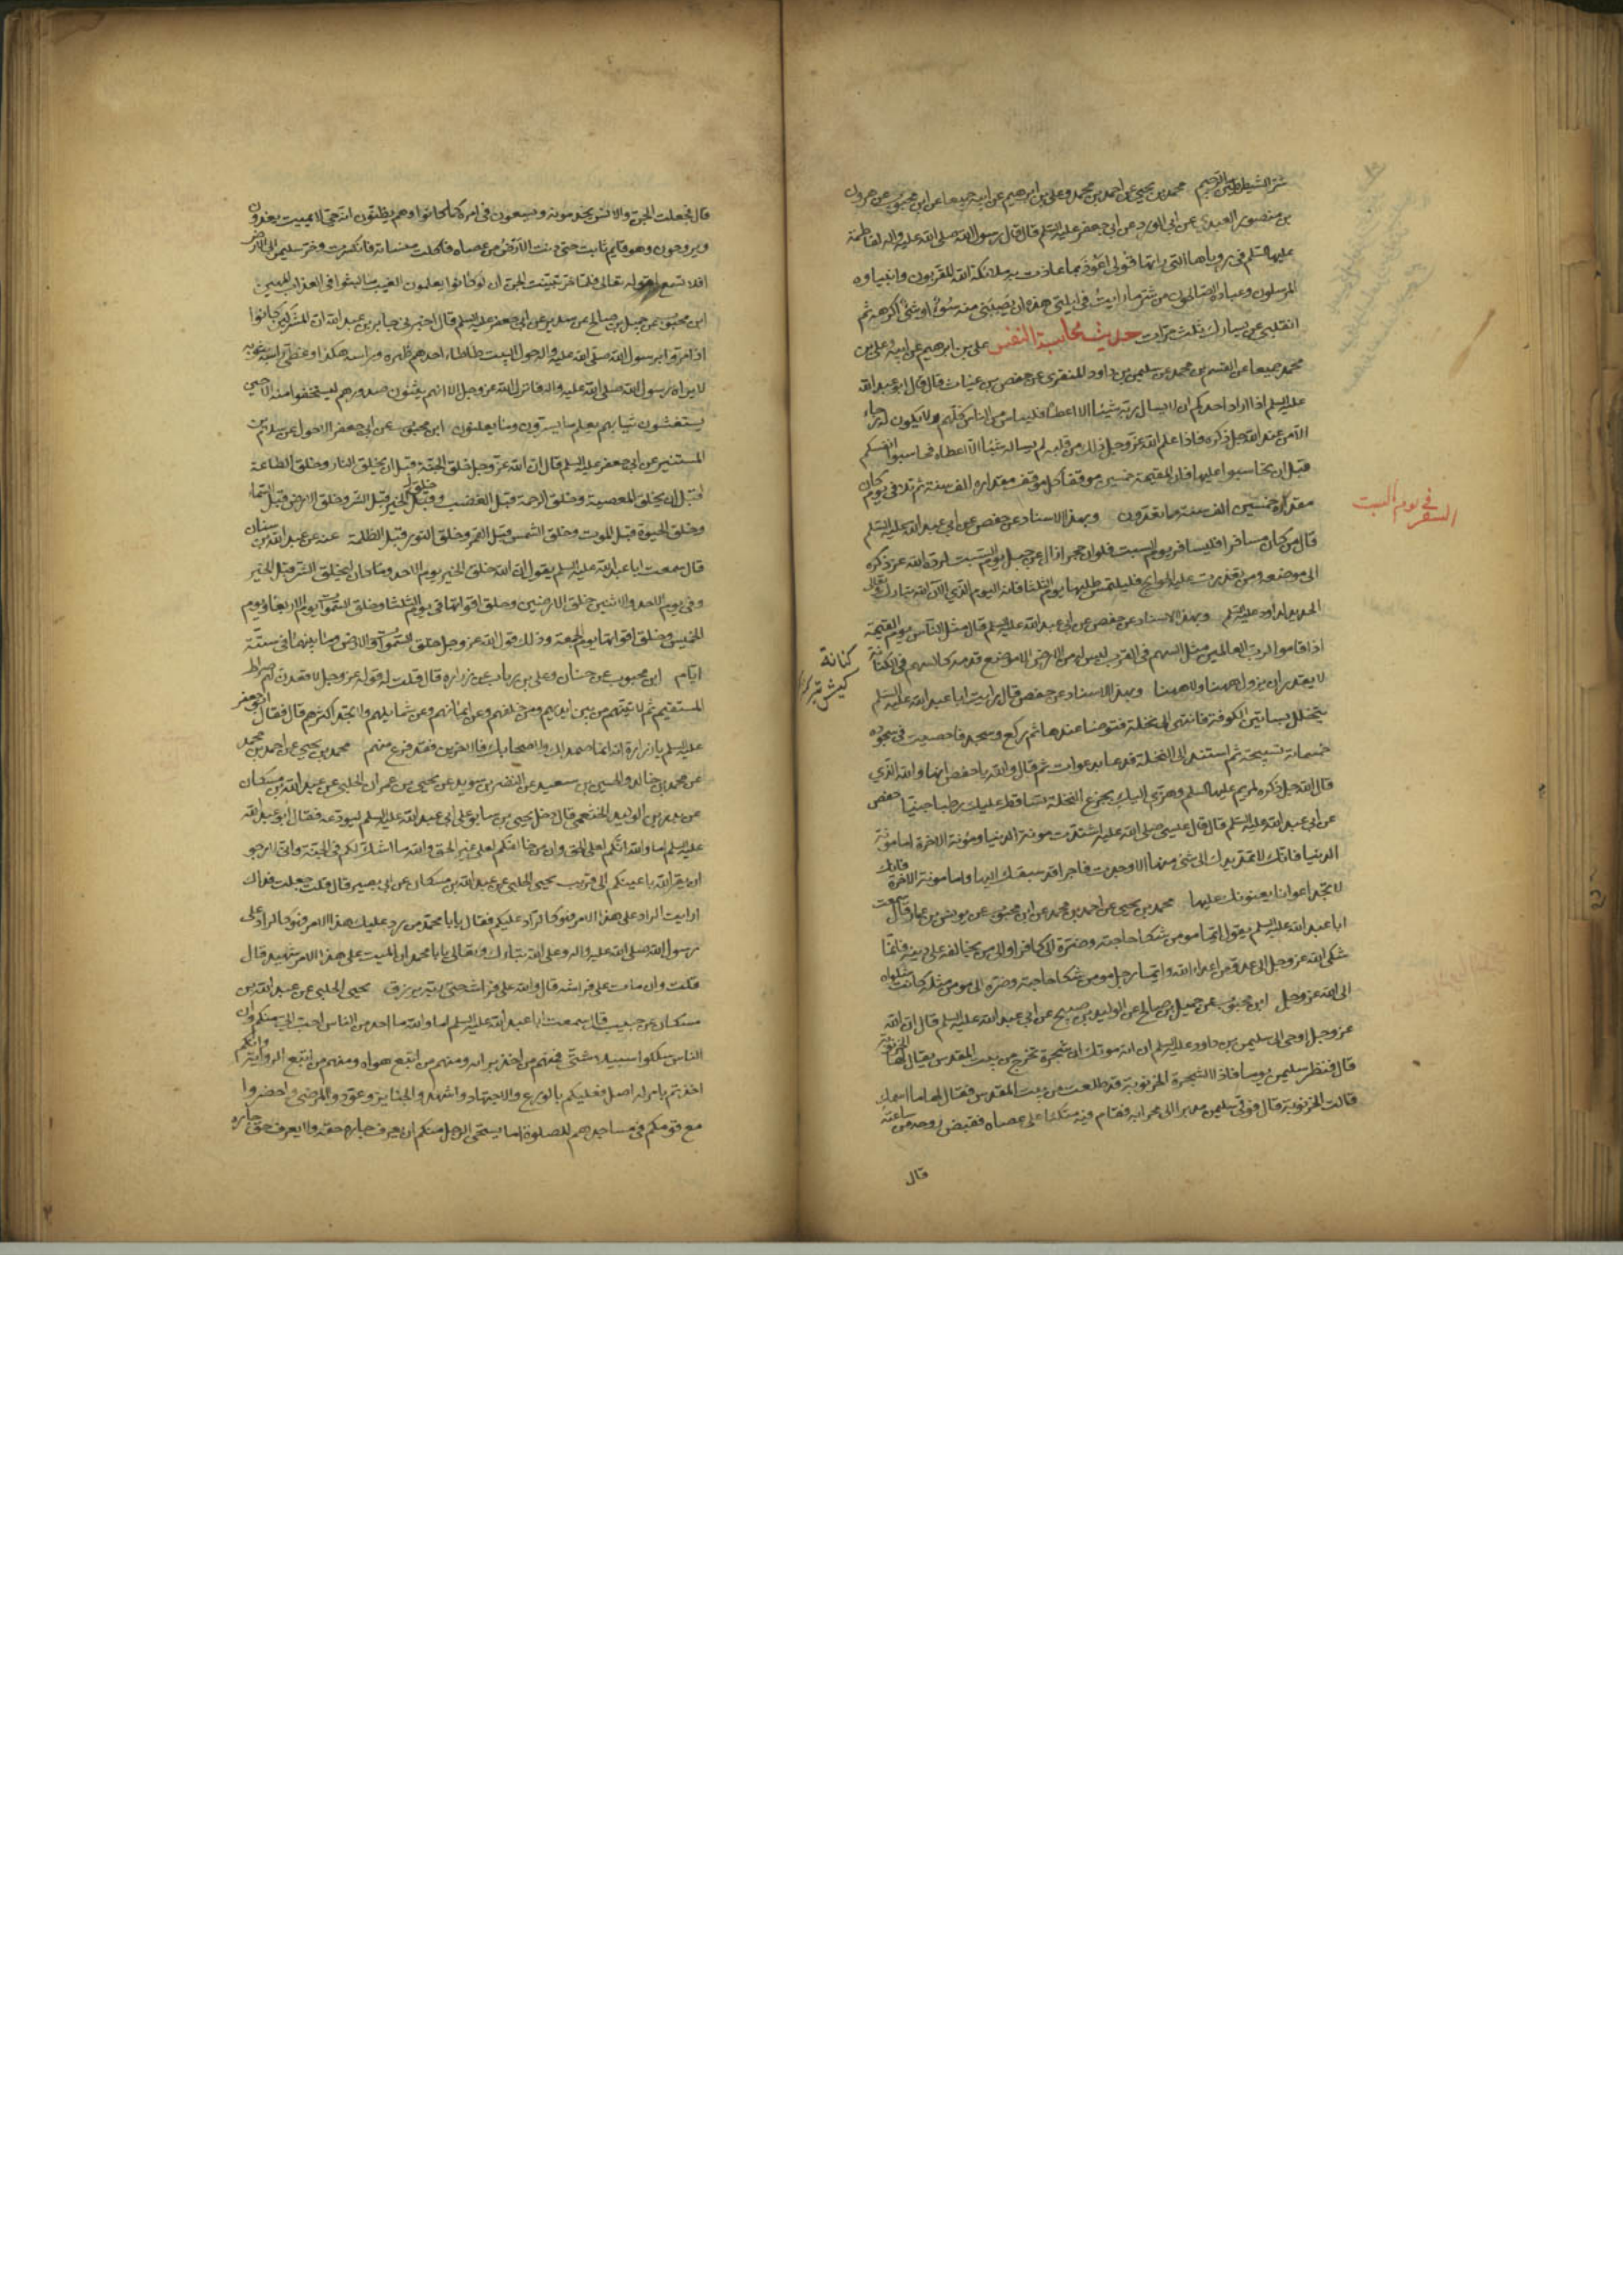 شر الشيطان الرجيم محمد بن يحيى عن احمد بن محمد وعلي بن ابرهيم عن ابيه جميعا عن ابن محبوب عن هرون
بن منصور العبدي عن ابي الورد عن ابي جعفر عليه السلم قال قال رسول الله صلى الله عليه واله لفاطمة
عليها السلم في روياها التي راتها قولي اعوذ بما عاذت به ملائكة الله المقربون وانبياوه
المرسلون وعباده الصالحون من شر ما رايت في ليلتي هذه ان يصيبني منه سوء او شئ اكرهه ثم
انقلبي عن يسارك ثلث مرات حديث محاسبة النفس علي بن ابرهيم عن ابيه وعلي بن
محمد جميعا عن القسم بن محمد عن سليمن بن داود المنقري عن حفص بن غياث قال قال ابو عبد الله
عليه السلم اذا اراد احدكم ان لا يسال ربه شيئا الا اعطاه فلييأس من الناس كلهم ولا يكون له رجاء
الا من عند الله جل ذكره فاذا علم الله عز وجل ذلك من قلبه لم يساله شيئا الا اعطاه فحاسبوا انفسكم
قبل ان تحاسبوا عليها فان للقيمة خمسين موقفا كل موقف مقداره الف سنة ثم تلا في يوم كان
مقداره خمسين الف سنة مما تعدون وبهذا الاسناد عن حفص عن ابي عبد الله عليه السلم
السفر في يوم السبت
قال من كان مسافرا فليسافر يوم السبت فلو ان حجرا زال عن جبل يوم السبت لرده الله عز ذكره
الى موضعه ومن تعذرت عليه الحوايج فليلتمس طلبها يوم الثلثا فانه اليوم الذي الان الله تبارك وتعالى
الحديد لداود عليه السلم وبهذا الاسناد عن حفص عن ابي عبد الله عليه السلم قال مثل الناس يوم القيمة
اذا قاموا لرب العالمين مثل السهم في القرب ليس له من الارض الا موضع قدمه كالسهم في الكنانة
كنانة
كيش تير
لا يقدر ان يزول ههنا ولا ههنا وبهذا الاسناد عن حفص قال رايت ابا عبد الله عليه السلم
يتخلل بساتين الكوفة فانتهى الى نخلة فتوضا عندها ثم ركع وسجد فاحصيت في سجوده
خمسمائة تسبيحة ثم استند الى النخلة فدعا بدعوات ثم قال والله يا حفص انها والله الذي
قال الله جل ذكره لمريم عليها السلم وهزي اليك بجزع النخلة تساقط عليك رطبا جنيا حفص
عن ابي عبد الله عليه السلم قال قال عيسى صلى الله عليه اشتدت مونة الدنيا ومونة الاخرة اما مونة
الدنيا فانك لا تمد يدك الى شئ منها الا وجدت فاجرا قد سبقك اليها واما مونة الاخرة فانك
لا تجد اعوانا يعينونك عليها محمد بن يحيى عن احمد بن محمد عن ابن محبوب عن يونس بن عمار قال سمعت
ابا عبد الله عليه السلم يقول ايما مومن شكا حاجته وضره الى كافر او الى من يخالفه على دينه فانما
شكى الله عز وجل الى عدو من اعداء الله وايما رجل مومن شكا حاجته وضره الى مومن مثله كانت شكواه
الى الله عز وجل ابن محبوب عن جميل بن صالح عن الوليد بن صبيح عن ابي عبد الله عليه السلم قال ان الله
عز وجل اوحى الى سليمن بن داود عليه السلم ان اية موتك ان شجرة تخرج من بيت المقدس يقال لها الخرنوبة
قال فنظر سليمن يوما فاذا الشجرة الخرنوبة قد طلعت من بيت المقدس فقال لها ما اسمك
قالت الخرنوبة قال فولى سليمن مدبرا الى محرابه فقام فيه متكئا على عصاه فقبض روحه من ساعته
قال
قال فجعلت الجن والانس يخدمونه ويسعون في امره كما كانوا وهم يظنون انه حي لا يميت يغدون
ويروحون وهو قايم ثابت حتى دنت الارض من عصاه فاكلت منسأته فانكسرت وخر سليمن الى الارض
افلا تسمع لقوله تعالى فلما خر تبينت الجن ان لو كانوا يعلمون الغيب ما لبثوا في العذاب المهين
ابن محبوب عن جميل بن صالح عن سدير عن ابي جعفر عليه السلم قال اخبرني جابر بن عبد الله ان المشركين كانوا
اذا مروا برسول الله صلى الله عليه واله حول البيت طاطا احدهم ظهره وراسه هكذا وغطى راسه بثوبه
لا يراه رسول الله صلى الله عليه واله فانزل الله عز وجل الا انهم يثنون صدورهم ليستخفوا منه الا حين
يستغشون ثيابهم يعلم ما يسرون وما يعلنون ابن محبوب عن ابي جعفر الاحول عن سلام بن
المستنير عن ابي جعفر عليه السلم قال ان الله عز وجل خلق الجنة قبل ان يخلق النار وخلق الطاعة
قبل ان يخلق المعصية وخلق الرحمة قبل الغضب وخلق الخير قبل الشر وخلق الارض قبل السماء
وخلق الحيوة قبل الموت وخلق الشمس قبل القمر وخلق النور قبل الظلمة عنه عن عبد الله بن سنان
قال سمعت ابا عبد الله عليه السلم يقول ان الله خلق الخير يوم الاحد وما كان ليخلق الشر قبل الخير
وفي يوم الاحد والاثنين خلق الارضين وخلق اقواتها في يوم الثلثا وخلق السموات يوم الاربعاء ويوم
الخميس وخلق اقواتها يوم الجمعة وذلك قول الله عز وجل خلق السموات والارض وما بينهما في ستة
ايام ابن محبوب عن حنان وعلي بن رياب عن زرارة قال قلت له قوله عز وجل لاقعدن لهم صراطك
المستقيم ثم لاتينهم من بين ايديهم ومن خلفهم وعن ايمانهم وعن شمايلهم ولا تجد اكثرهم قال فقال ابو جعفر
عليه السلم يا زرارة انه انما صمد لك ولاصحابك فاما الاخرين فقد فرغ منهم محمد بن يحيى عن احمد بن محمد
عن محمد بن خالد والحسين بن سعيد عن النضر بن سويد عن يحيى بن عمران الحلبي عن عبد الله بن مسكان
عن بدر بن الوليد الخثعمي قال دخل يحيى بن سابور على ابي عبد الله عليه السلم ليودعه فقال ابو عبد الله
عليه السلم اما والله انكم لعلى الحق وان من خالفكم لعلى غير الحق والله ما اشك لكم في الجنة واني لارجو
ان يقر الله باعينكم الى قريب يحيى الحلبي عن عبد الله بن مسكان عن ابي بصير قال قلت جعلت فداك
ارايت الراد على هذا الامر فهو كالراد عليكم فقال يا با محمد من رد عليك هذا الامر فهو كالراد على
رسول الله صلى الله عليه واله وعلى الله تبارك وتعالى يا با محمد ان الميت على هذا الامر شهيد قال
قلت وان مات على فراشه قال والله على فراشه حي عند ربه يرزق يحيى الحلبي عن عبد الله بن
مسكان عن حبيب قال سمعت ابا عبد الله عليه السلم اما والله ما احد من الناس احب الي منكم وان
الناس سلكوا سبيلا شتى فمنهم من اخذ برايه ومنهم من اتبع هواه ومنهم من اتبع الرواية وانكم
اخذتم بامر له اصل فعليكم بالورع والاجتهاد واشهدوا الجنايز وعودوا المرضى واحضروا
مع قومكم في مساجدهم للصلوة اما يستحي الرجل منكم ان يعرف جاره حقه ولا يعرف حق جاره